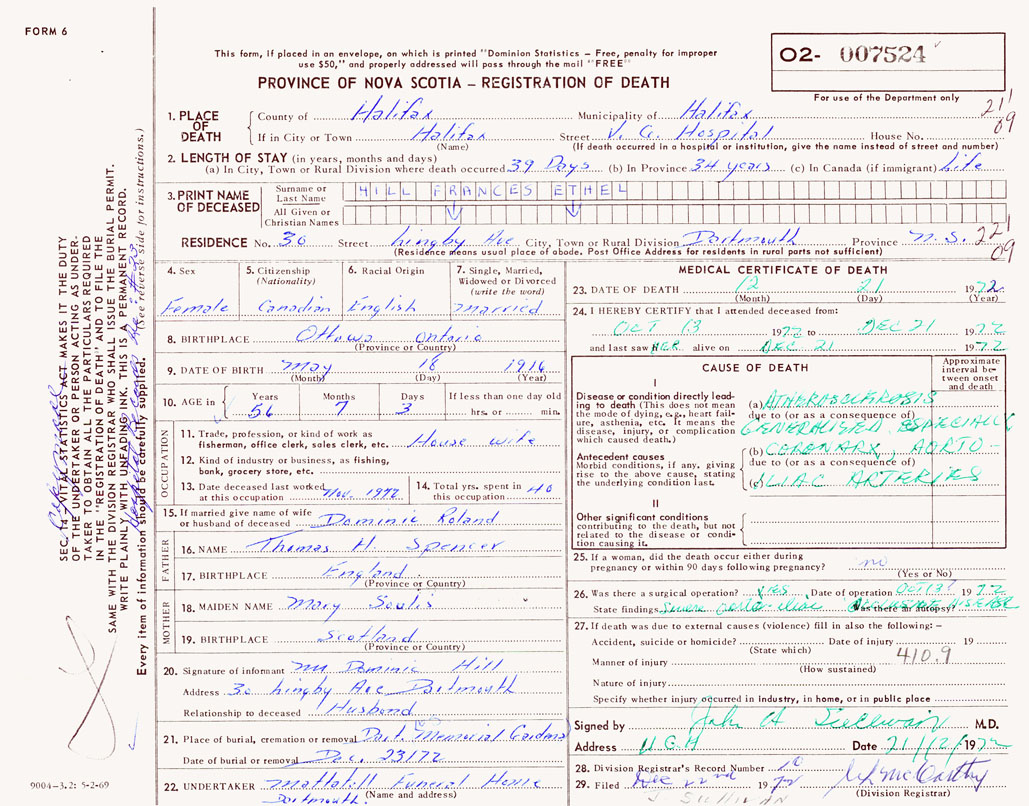 FORM 6
This form, if placed in an envelope, on which is printed "Dominion Statistics – Free, penalty for improper
use $50," and properly addressed will pass through the mail "FREE"
PROVINCE OF NOVA SCOTIA – REGISTRATION OF DEATH
O2- 007524
For use of the Department only
211
09
1. PLACE OF DEATH
County of Halifax Municipality of Halifax
If in City or Town Halifax Street V. G. Hospital House No.
(Name) (If death occurred in a hospital or institution, give the name instead of street and number)
2. LENGTH OF STAY (in years, months and days)
(a) In City, Town or Rural Division where death occurred 39 Days (b) In Province 34 years (c) In Canada (if immigrant) Life
3. PRINT NAME OF DECEASED
Surname or Last Name HILL FRANCES ETHEL
All Given or Christian Names
RESIDENCE No. 30 Street Lingby Ave City, Town or Rural Division Dartmouth Province N.S.
221
09
(Residence means usual place of abode. Post Office Address for residents in rural parts not sufficient)
4. Sex
Female
5. Citizenship
(Nationality)
Canadian
6. Racial Origin
English
7. Single, Married,
Widowed or Divorced
(write the word)
Married
8. BIRTHPLACE Ottawa Ontario
(Province or Country)
9. DATE OF BIRTH May 18 1916
(Month) (Day) (Year)
10. AGE in
Years Months Days If less than one day old
56 7 3 hrs. or min.
OCCUPATION
11. Trade, profession, or kind of work as
fisherman, office clerk, sales clerk, etc. House wife
12. Kind of industry or business, as fishing,
bank, grocery store, etc.
13. Date deceased last worked
at this occupation Nov. 1972
14. Total yrs. spent in
this occupation 40
15. If married give name of wife
or husband of deceased Dominic Roland
FATHER
16. NAME Thomas H. Spencer
17. BIRTHPLACE England
(Province or Country)
MOTHER
18. MAIDEN NAME Mary
19. BIRTHPLACE Scotland
(Province or Country)
20. Signature of informant Mr Dominic Hill
Address 30 Lingby Ave Dartmouth
Relationship to deceased Husband
21. Place of burial, cremation or removal Dart. Memorial Gardens
Date of burial or removal Dec. 23/72
22. UNDERTAKER Mattatall Funeral Home
(Name and address)
Dartmouth.
MEDICAL CERTIFICATE OF DEATH
23. DATE OF DEATH 12 21 1972
(Month) (Day) (Year)
24. I HEREBY CERTIFY that I attended deceased from:
OCT 13 1972 to DEC 21 1972
and last saw HER alive on DEC 21 1972
CAUSE OF DEATH
Approximate
interval be-
tween onset
and death
I
Disease or condition directly lead-
ing to death (This does not mean
the mode of dying, e.g., heart fail-
ure, asthenia, etc. It means the
disease, injury, or complication
which caused death.)
(a) ATHEROSCLEROSIS
due to (or as a consequence of)
GENERALISED ESPECIALLY
Antecedent causes
Morbid conditions, if any, giving
rise to the above cause, stating
the underlying condition last.
(b) CORONARY, AORTO-
due to (or as a consequence of)
(c) ILIAC ARTERIES
II
Other significant conditions
contributing to the death, but not
related to the disease or condi-
tion causing it.
25. If a woman, did the death occur either during
pregnancy or within 90 days following pregnancy? no
(Yes or No)
26. Was there a surgical operation? YES Date of operation OCT 1972
State findings Severe aorto-iliac OCCLUSIVE DISEASE
Was there an autopsy?
27. If death was due to external causes (violence) fill in also the following: –
Accident, suicide or homicide? Date of injury 19
(State which)
Manner of injury 410.9
(How sustained)
Nature of injury
Specify whether injury occurred in industry, in home, or in public place
Signed by John A Sullivan M.D.
Address V.G.H Date 21/12/1972
28. Division Registrar's Record Number
29. Filed Dec 22nd 1972 McCarthy
(Division Registrar)
J. SULLIVAN
SEC. 14 VITAL STATISTICS ACT MAKES IT THE DUTY
OF THE UNDERTAKER OR PERSON ACTING AS UNDER-
TAKER TO OBTAIN ALL THE PARTICULARS REQUIRED
IN THE "REGISTRATION OF DEATH" AND TO FILE THE
SAME WITH THE DIVISION REGISTRAR WHO SHALL ISSUE THE BURIAL PERMIT.
WRITE PLAINLY WITH UNFADING INK. THIS IS A PERMANENT RECORD.
Every item of information should be carefully supplied. (See reverse side for instructions.)
9004-3.2: 5-2-69